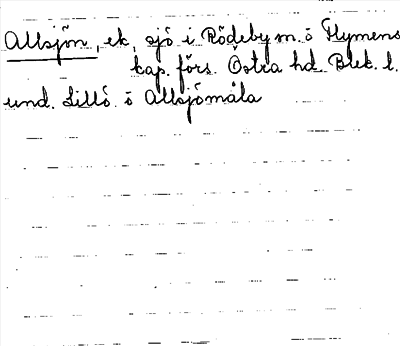 Allsjön, ek, sjö i Rödeby m. o Flymens
kap. förs. Östra hd. Blek. l.
und. Lillö o Allsjömåla